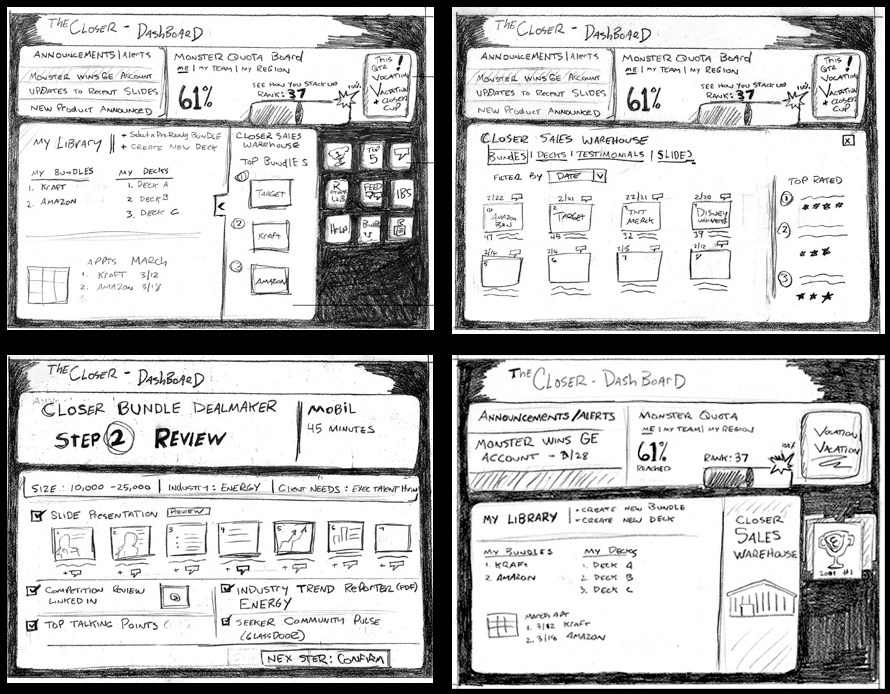 The Closer - DashBoarD
Announcements/Alerts
Monster Wins GE Account
Updates to Recent Slides
New Product Announced
Monster Quota Board
Me | My Team | My Region
61%
See how you stack up
Rank: 37
100%
This
Qtr !
Vocation
Vacation
+ Closer
Cup
My Library
+ Select a Pre Ready Bundle
+ Create New Deck
My Bundles
1. Kraft
2. Amazon
My Decks
1. Deck A
2. Deck B
3. Deck C
Appts March
1. Kraft 3/12
2. Amazon 3/18
3.
Closer Sales
Warehouse
Top Bundles
1
Target
2
Kraft
3
Amazon
Top
5
IBS
Help
The Closer - DashBoarD
Announcements/Alerts
Monster Wins GE Account
Updates to Recent Slides
New Product Announced
Monster Quota Board
Me | My Team | My Region
61%
See how you stack up
Rank: 37
100%
This
Qtr !
Vocation
Vacation
+ Closer
Cup
Closer Sales Warehouse
X
Bundles | Decks | Testimonials | Slides
Filter By Date V
2/22 2/21 22/21 2/20
1 Amazon
2 Target
TNT
Merch
Disney
47 45 32 39
5 6 7 8
Top Rated
1
2
3
The Closer - DashBoarD
Closer Bundle Dealmaker
Step 2 Review
Mobil
45 Minutes
Size: 10,000 - 25,000 | Industry: Energy | Client Needs: Exec Talent
Slide Presentation Preview
1 2 3 4 5 6 7
Competition Review
LinkedIn
Industry Trend Reporter (PDF)
Energy
Top Talking Points
Seeker Community Pulse
(Glassdoor)
Nex Step: Confirm
The Closer - DashBoarD
Announcements/Alerts
Monster Wins GE
Account - 3/28
Monster Quota
Me | My Team | My Region
61%
Reached
Rank: 37
100%
Vocation
Vacation
My Library
+ Create New Bundle
- Create New Deck
My Bundles
1. Kraft
2. Amazon
My Decks
1. Deck A
2. Deck B
3. Deck C
1. 3/12 Kraft
2. 3/18 Amazon
Closer
Sales
Warehouse